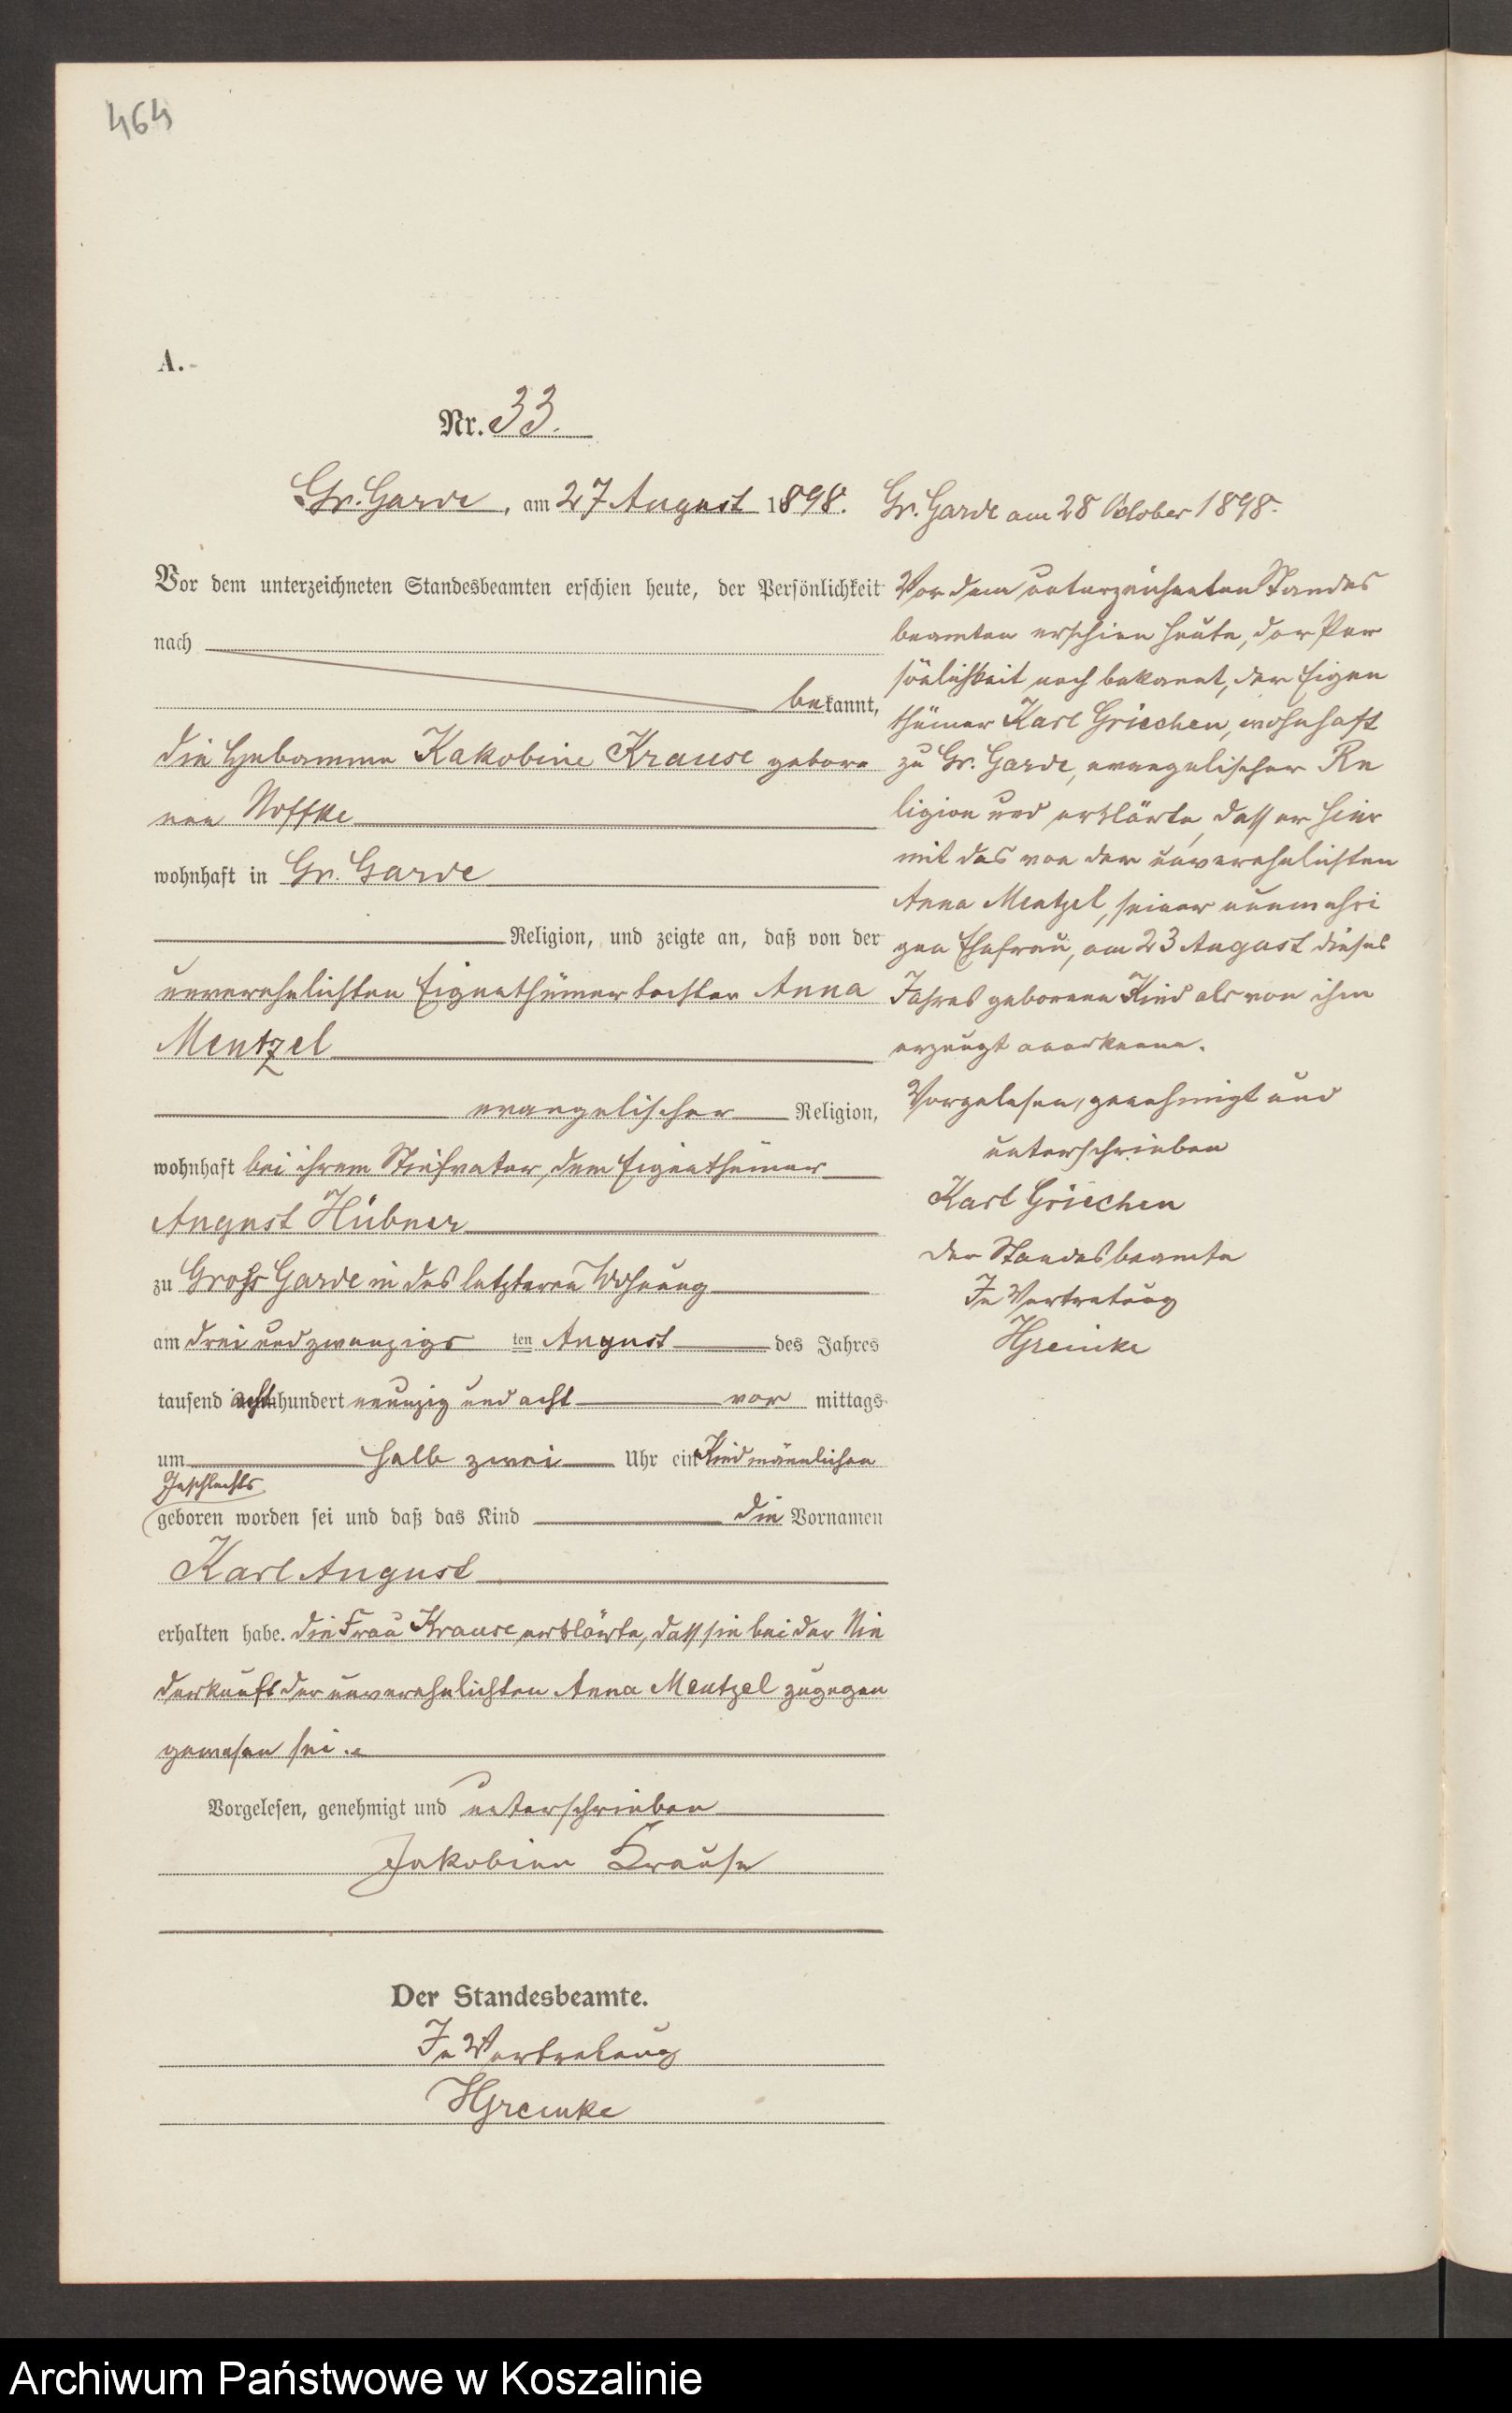 464
A.
Nr. 33.
Gr. Garde, am 27 August 1898.
Vor dem unterzeichneten Standesbeamten erschien heute, der Persönlichkeit
nach
bekannt,
die Hebamme Kakobine Krause gebore
nen Noffke
wohnhaft in Gr. Garde
Religion, und zeigte an, daß von der
unverehelichten Eigenthümertochter Anna
Mentzel
evangelischer Religion,
wohnhaft bei ihrem Stiefvater, dem Eigenthümer
August Hübner
zu Gross Garde in des letzteren Wohnung
am drei und zwanzigs ten August des Jahres
tausend achthundert neunzig und acht vor mittags
um halb zwei Uhr ein Kind männlichen
Geschlechts
geboren worden sei und daß das Kind die Vornamen
Karl August
erhalten habe. Die Frau Krause erklärte, dass sie bei der Nie
derkunft der unverehelichten Anna Mentzel zugegen
gewesen sei.
Vorgelesen, genehmigt und unterschrieben
Jakobine Krause
Der Standesbeamte.
In Vertretung
HGreinke
Gr. Garde am 28 October 1898.
Vor dem unterzeichneten Standes
beamten erschien heute, der Per
sönlichkeit nach bekannt, der Eigen
thümer Karl Griechen, wohnhaft
zu Gr. Garde, evangelischer Re
ligion und erklärte, dass er hier
mit das von der unverehelichten
Anna Mentzel, seiner nunmehri
gen Ehefrau, am 23 August dieses
Jahres geborene Kind als von ihm
erzeugt anerkenne.
Vorgelesen, genehmigt und
unterschrieben
Karl Griechen
Der Standesbeamte
In Vertretung
HGreinke
Archiwum Państwowe w Koszalinie